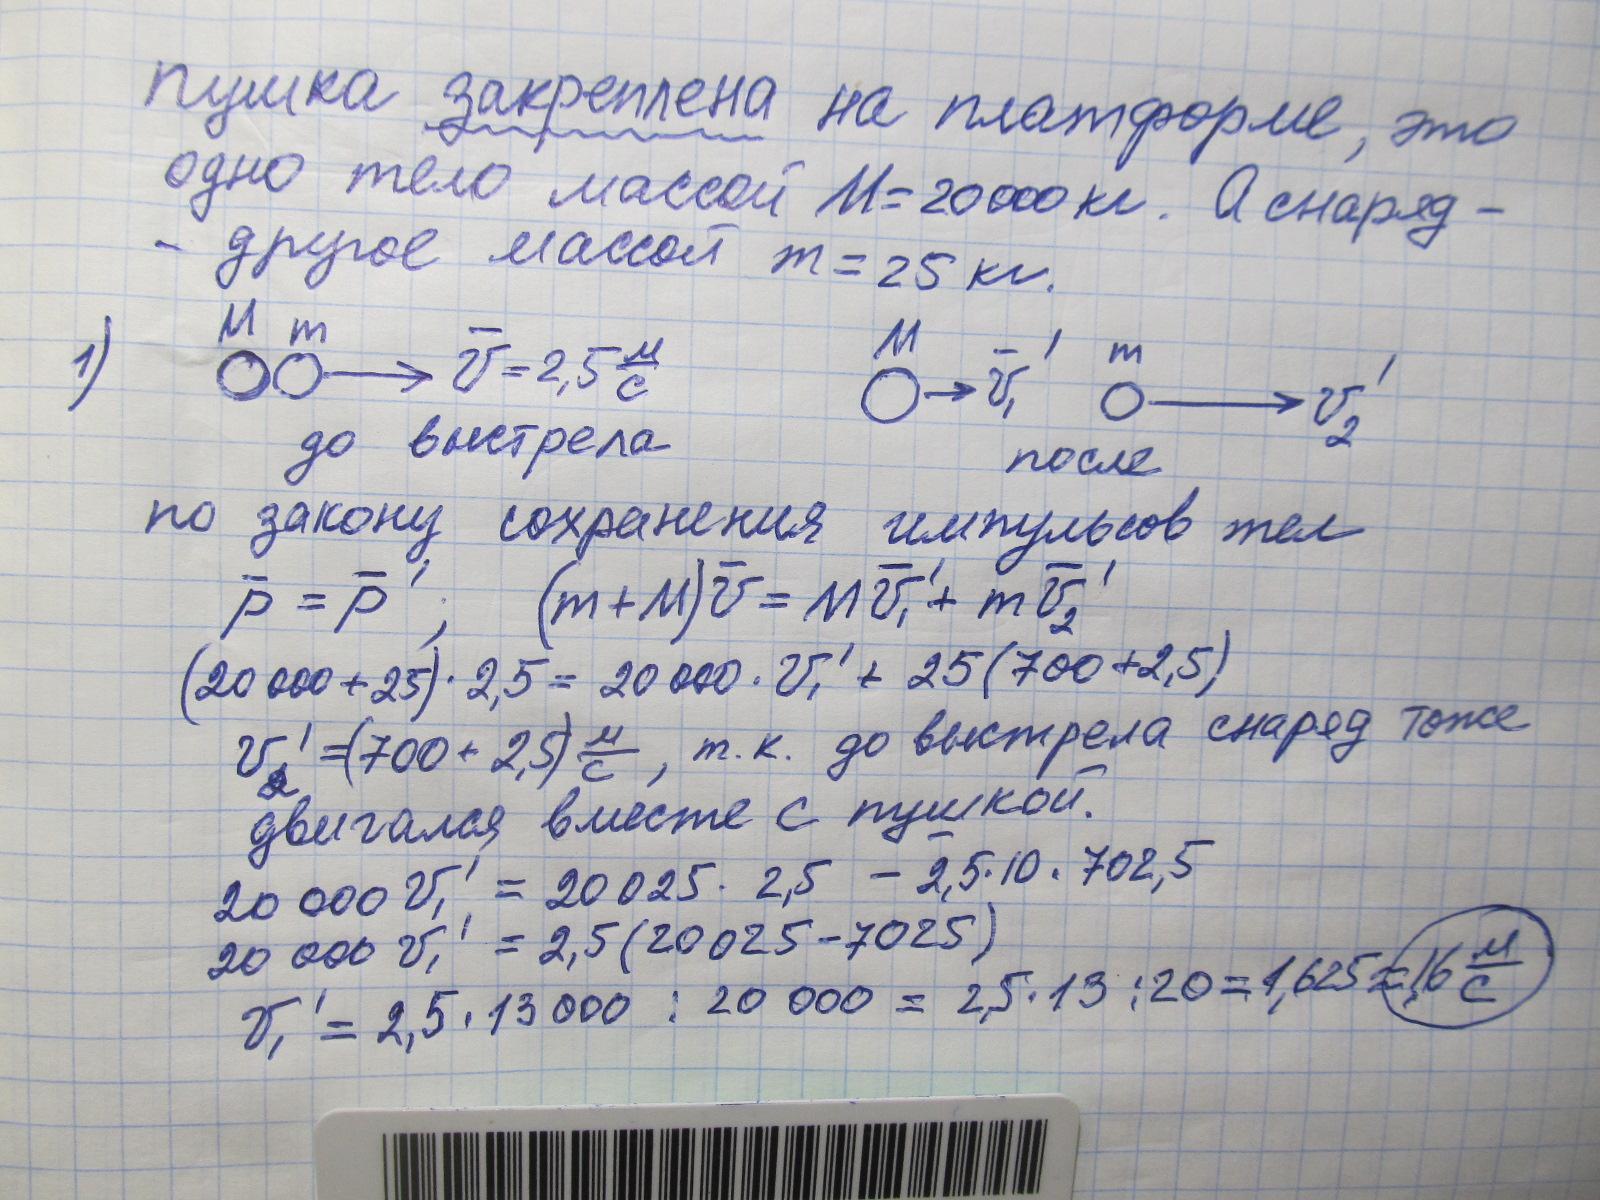 Пушка закреплена на платформе, это
одно тело массой M=20000кг. А снаряд -
- другое массой m=25 кг.
M m M m
1) v̅=2,5 м/с v̅₁' v₂'
до выстрела после
по закону сохранения импульсов тел
p̅ = p̅'; (m+M)v̅ = Mv̅₁'+ mv̅₂'
(20 000+25)·2,5= 20 000·v₁'+ 25(700+2,5)
v₂'=(700+2,5) м/с, т.к. до выстрела снаряд тоже
двигался вместе с пушкой.
20 000 v₁' = 20 025· 2,5 - 2,5·10·702,5
20 000 v₁' = 2,5(20025-7025)
v₁' = 2,5·13 000 : 20 000 = 2,5·13 :20=1,625≈1,6 м/с